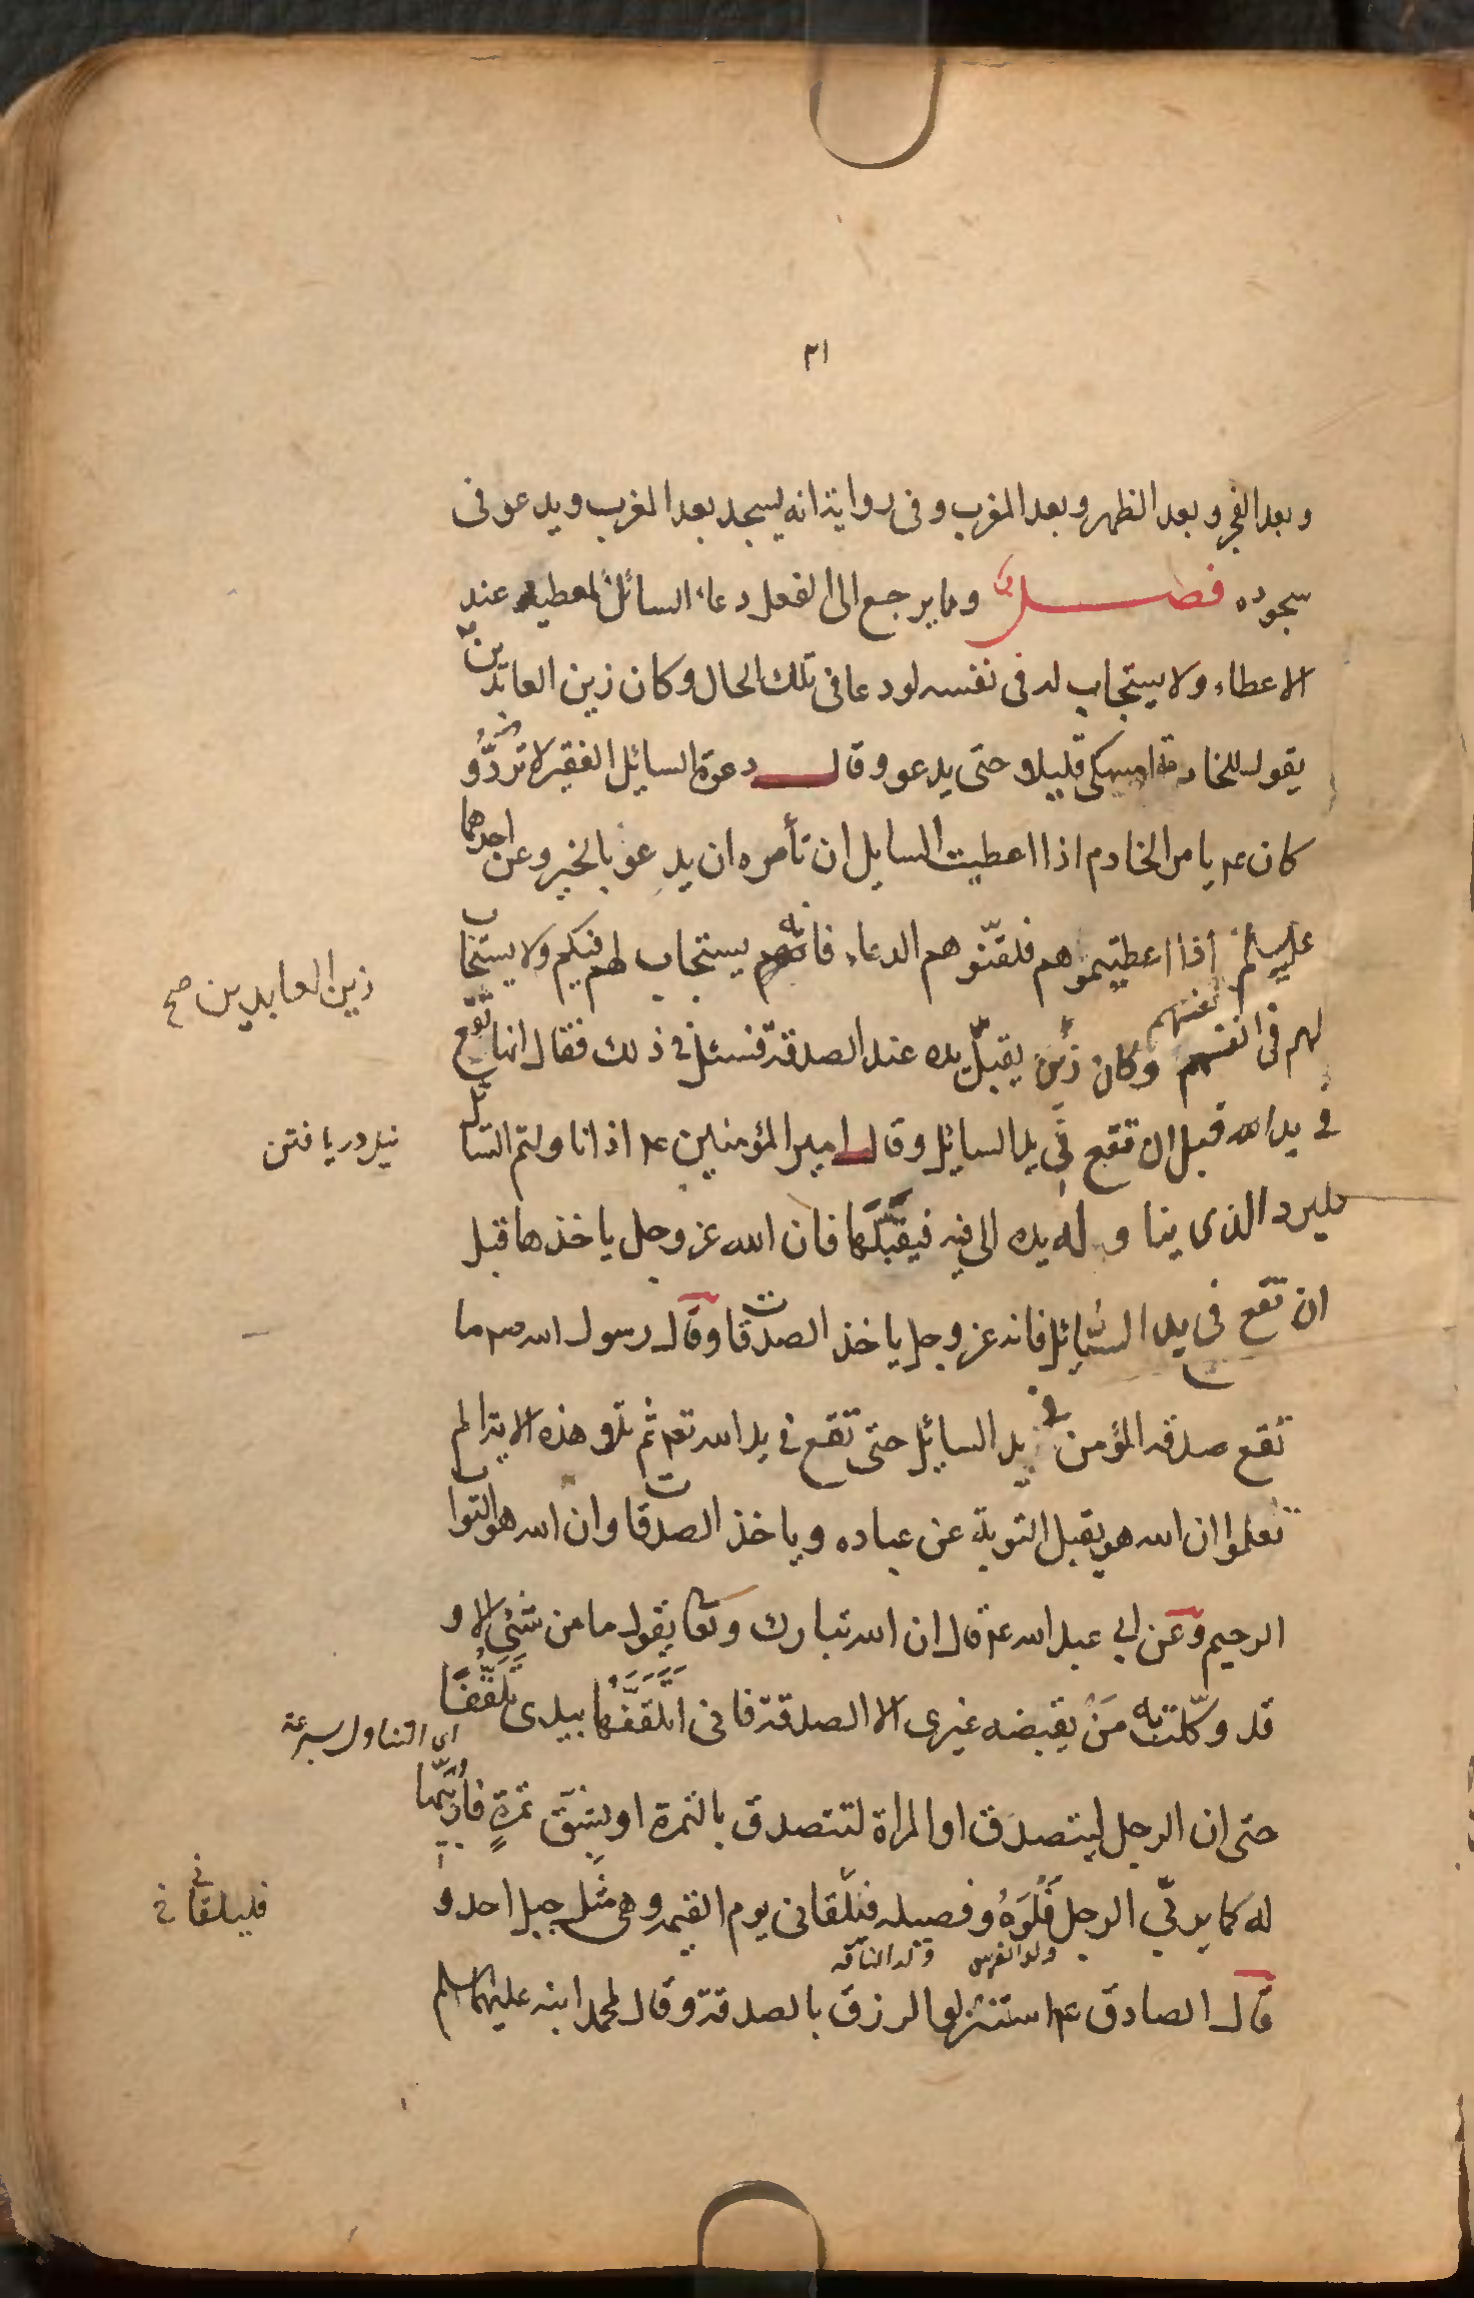 ٣١
وبعد الفجر وبعد الظهر وبعد المغرب وفى رواية انه يسجد بعد المغرب ويدعو فى
سجوده فصل ومما يرجع الى الفعل دعاء السائل لمعطيه عند
الاعطاء ولا يستجاب له فى نفسه لو دعا فى تلك الحال وكان زين العابدين
يقول للخادمة امسكى قليلا حتى يدعو وقال دعوة السائل الفقير لا تردو
كان عم يامر الخادم اذا اعطيت السايل ان تأمره ان يدعو بالخير وعن احدهما
عليهما السلم اذا اعطيتموهم فلقنوهم الدعاء فانهم يستجاب لهم فيكم ولا يستجاب
لهم فى انفسهم وكان زين يقبل يده عند الصدقة فسئل فى ذلك فقال انها تقع
انفسهم
زين العابدين صح
فى يد الله قبل ان تقع فى يد السايل وقال امير المؤمنين عم اذا ناولتم السائل
فليرد الذى يناوله يده الى فيه فيقبلها فان الله عز وجل ياخذها قبل
ان تقع فى يد السائل فانه عز وجل ياخذ الصدقات وقال رسول الله صم ما
تقع صدقه المؤمن فى يد السايل حتى تقع فى يد الله تعم ثم تلا هذه الاية الم
تعلموا ان الله هو يقبل التوبة عن عباده وياخذ الصدقات وان الله هو التواب
الرحيم وعن ابى عبد الله عم قال ان الله تبارك وتعا يقول ما من شئ الا و
قد وكلت به من يقبضه غيرى الا الصدقة فانى اتلقفها بيدى تلقفا
اى التناول بسرعة
حتى ان الرجل ليتصدق او المراة لتتصدق بالتمرة او بشق تمرة فاربيها
له كما يربى الرجل فلوه وفصيله فتلقانى يوم القيمه وهى مثل جبل احد و
ولد الفرس ولد الناقه
فليلقانى
قال الصادق عم استنزلوا الرزق بالصدقة وقال لمحمد ابنه عليهما السلم